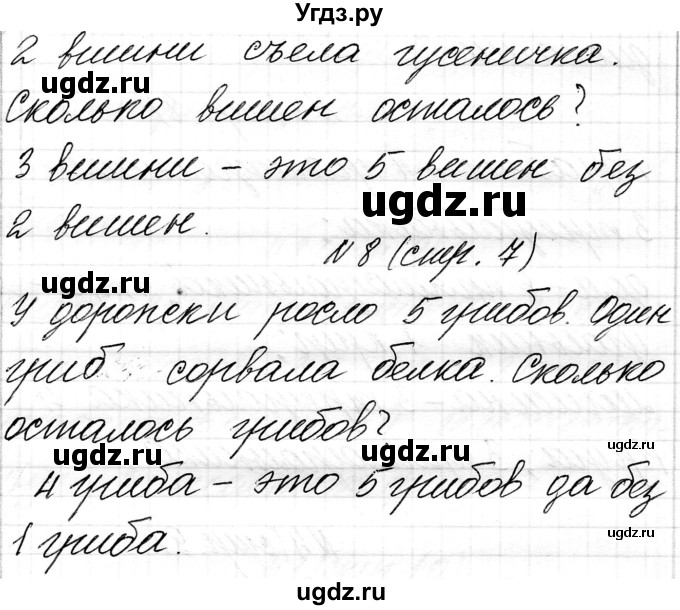 Угдз.ру
2 вишни съела гусеничка.
ugdz.ru
Сколько вишен осталось?
ugdz.ru
3 вишни – это 5 вишен без
ugdz.ru
2 вишен.
N 8 (стр. 7)
ugdz.ru
ugdz.ru
У дорожки росло 5 грибов. Один
гриб сорвала белка. Сколько
осталось грибов?
ugdz.ru
ugdz.ru
ugdz.ru
4 гриба – это 5 грибов да без
1 гриба.
ugdz.ru
ugdz.ru